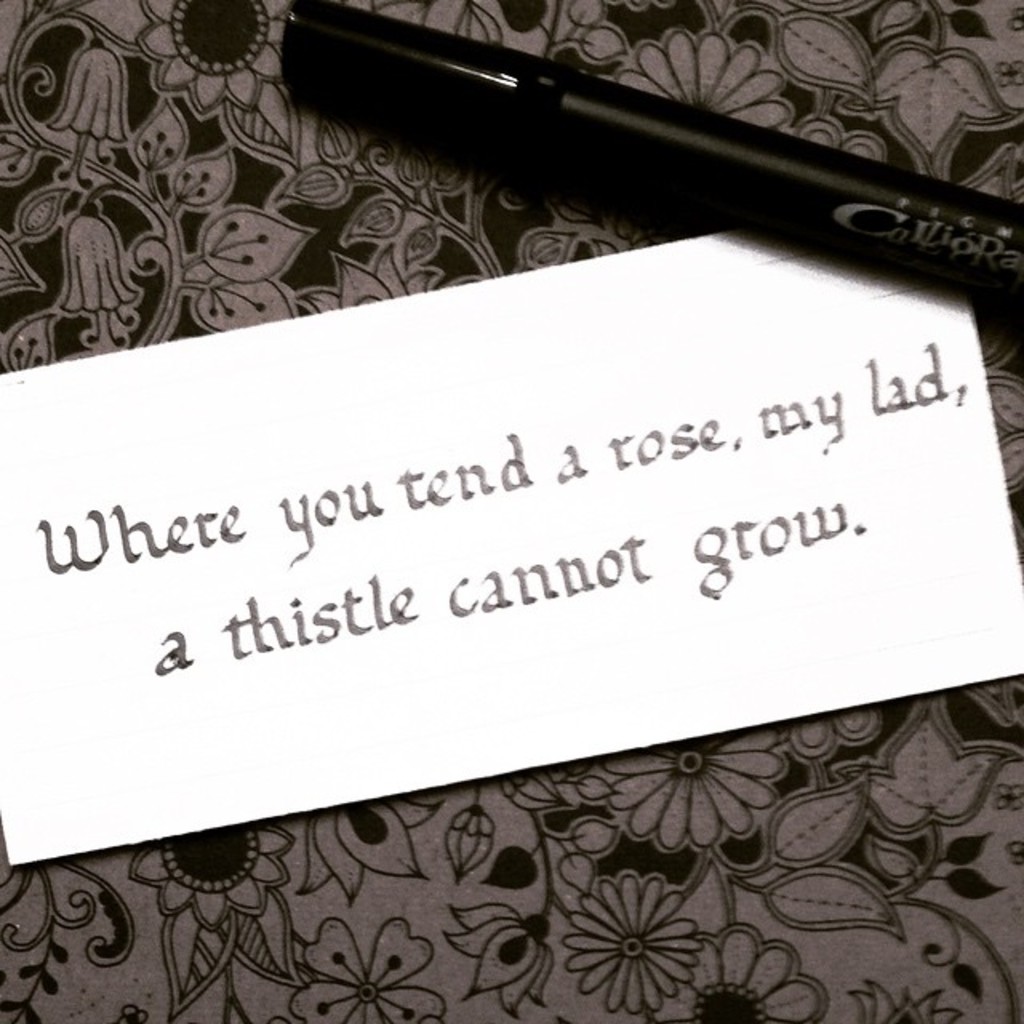 PIGM
CalligRa
Where you tend a rose, my lad,
a thistle cannot grow.